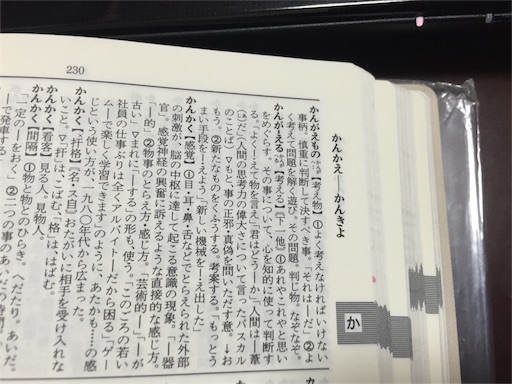 230
かんかえ──かんきよ
か
かんがえもの【考え物】①よく考えなければいけない
事柄。慎重に判断して決すべき事。「それは─だ」②よ
く考えて問題を解く遊び。その問題。判じ物。なぞなぞ。
かんが・える【考える】【下一他】①あれやこれやと思い
をめぐらす。その事について、心を知的に使って判断す
る。「よく─・えて物を言え」「君はどう─・か」「人間は─葦
だ」（人間の思考力の偉大さについて言ったパスカル
のことば）▽もと、事の正邪・真偽を問いただす意。→お
もう。②新たなものをくふうする。考案する。「もっとう
まい手段を─・えよう」「新しい機械を─・え出した」
かんかく【感覚】①目・耳・鼻・舌などでとらえられた外部
の刺激が、脳の中枢に達して起こる意識の現象。「─器
官」。感覚神経の興奮に訴えるような直接的な感じ方。
「─的」②物事のとらえ方・感じ方。「芸術的─」「─が
古い」▽まれに「─する」の形も使う。「このごろの若い
社員の仕事ぶりは全くアルバイト─だから困る」「ゲー
ム─で楽しく学習できます」のように、あたかも……の感
じという使い方が、一九八〇年代から広まった。
かんかく【扞格】【名・ス自】おたがいに相手を受け入れな
いこと。▽「扞」は、こばむ、「格」は、はばむ。
かんかく【看客】見る人。見物人。
かんかく【間隔】①物と物とのひらき。へだたり。あいだ。
「一定の─をおく」②二つの事のあいだの時間
─で発車す